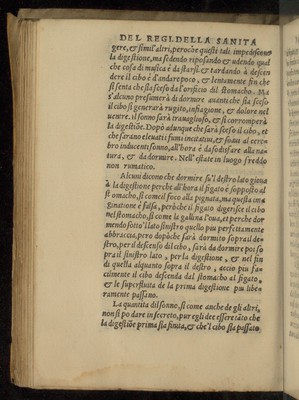 DEL REGI. DELLA SANITA
gere, & simil'altri, peroche questi tali impediscono
la digestione, ma sedendo riposando & udendo qual
che cosa di musica è da starsi. & tardando à descen
dere il cibo è d'andare poco, & lentamente fin che
si senta che sia sceso da l'orificio del stomacho. Ma
s'alcuno presumerà di dormire avanti che sia sceso
il cibo si generarà rugito, inflagione, & dolore nel
uentre. il sonno sarà travaglioso, & si corromperà
la digestiōe. Dopò adunque che sarà sceso il cibo, et
che saranno eleuati i fumi incitatiui, & soaui al cere-
bro inducenti sonno, all'hora è da sodisfare alla na-
tura, & da dormire. Nell'estate in luogo freddo
non rumatico.
Alcuni dicono che dormire su'l destro lato gioua
à la digestione perche all'hora il figato è sopposto al
stomacho, si come il foco alla pegnata, ma questa im
ginatione è falsa, peròche il figato digerisce il cibo
nel stomacho, si come la gallina l'oua, et perche dor
mendo sotto'l lato sinistro quello piu perfettamente
abbraccia, pero dopòche sarà dormito sopra il de-
stro, per il descenso del cibo, sarà da dormire poi so
pra il sinistro lato, per la digestione, & nel fin
di quella alquanto sopra il destro, accio piu fa-
cilmente il cibo descenda dal stomacho al figato,
& le superfluita de la prima digestione piu libe-
ramente passano.
La quantita del sonno, si come anche de gli altri,
non si po dare in secreto, pur egli dee essere tāto che
la digestiōe prima sia finita, & che'l cibo sia passato